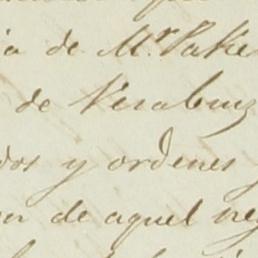 ia de Mr. Pake
de Verabruz
dos y ordenes
de aquel neg